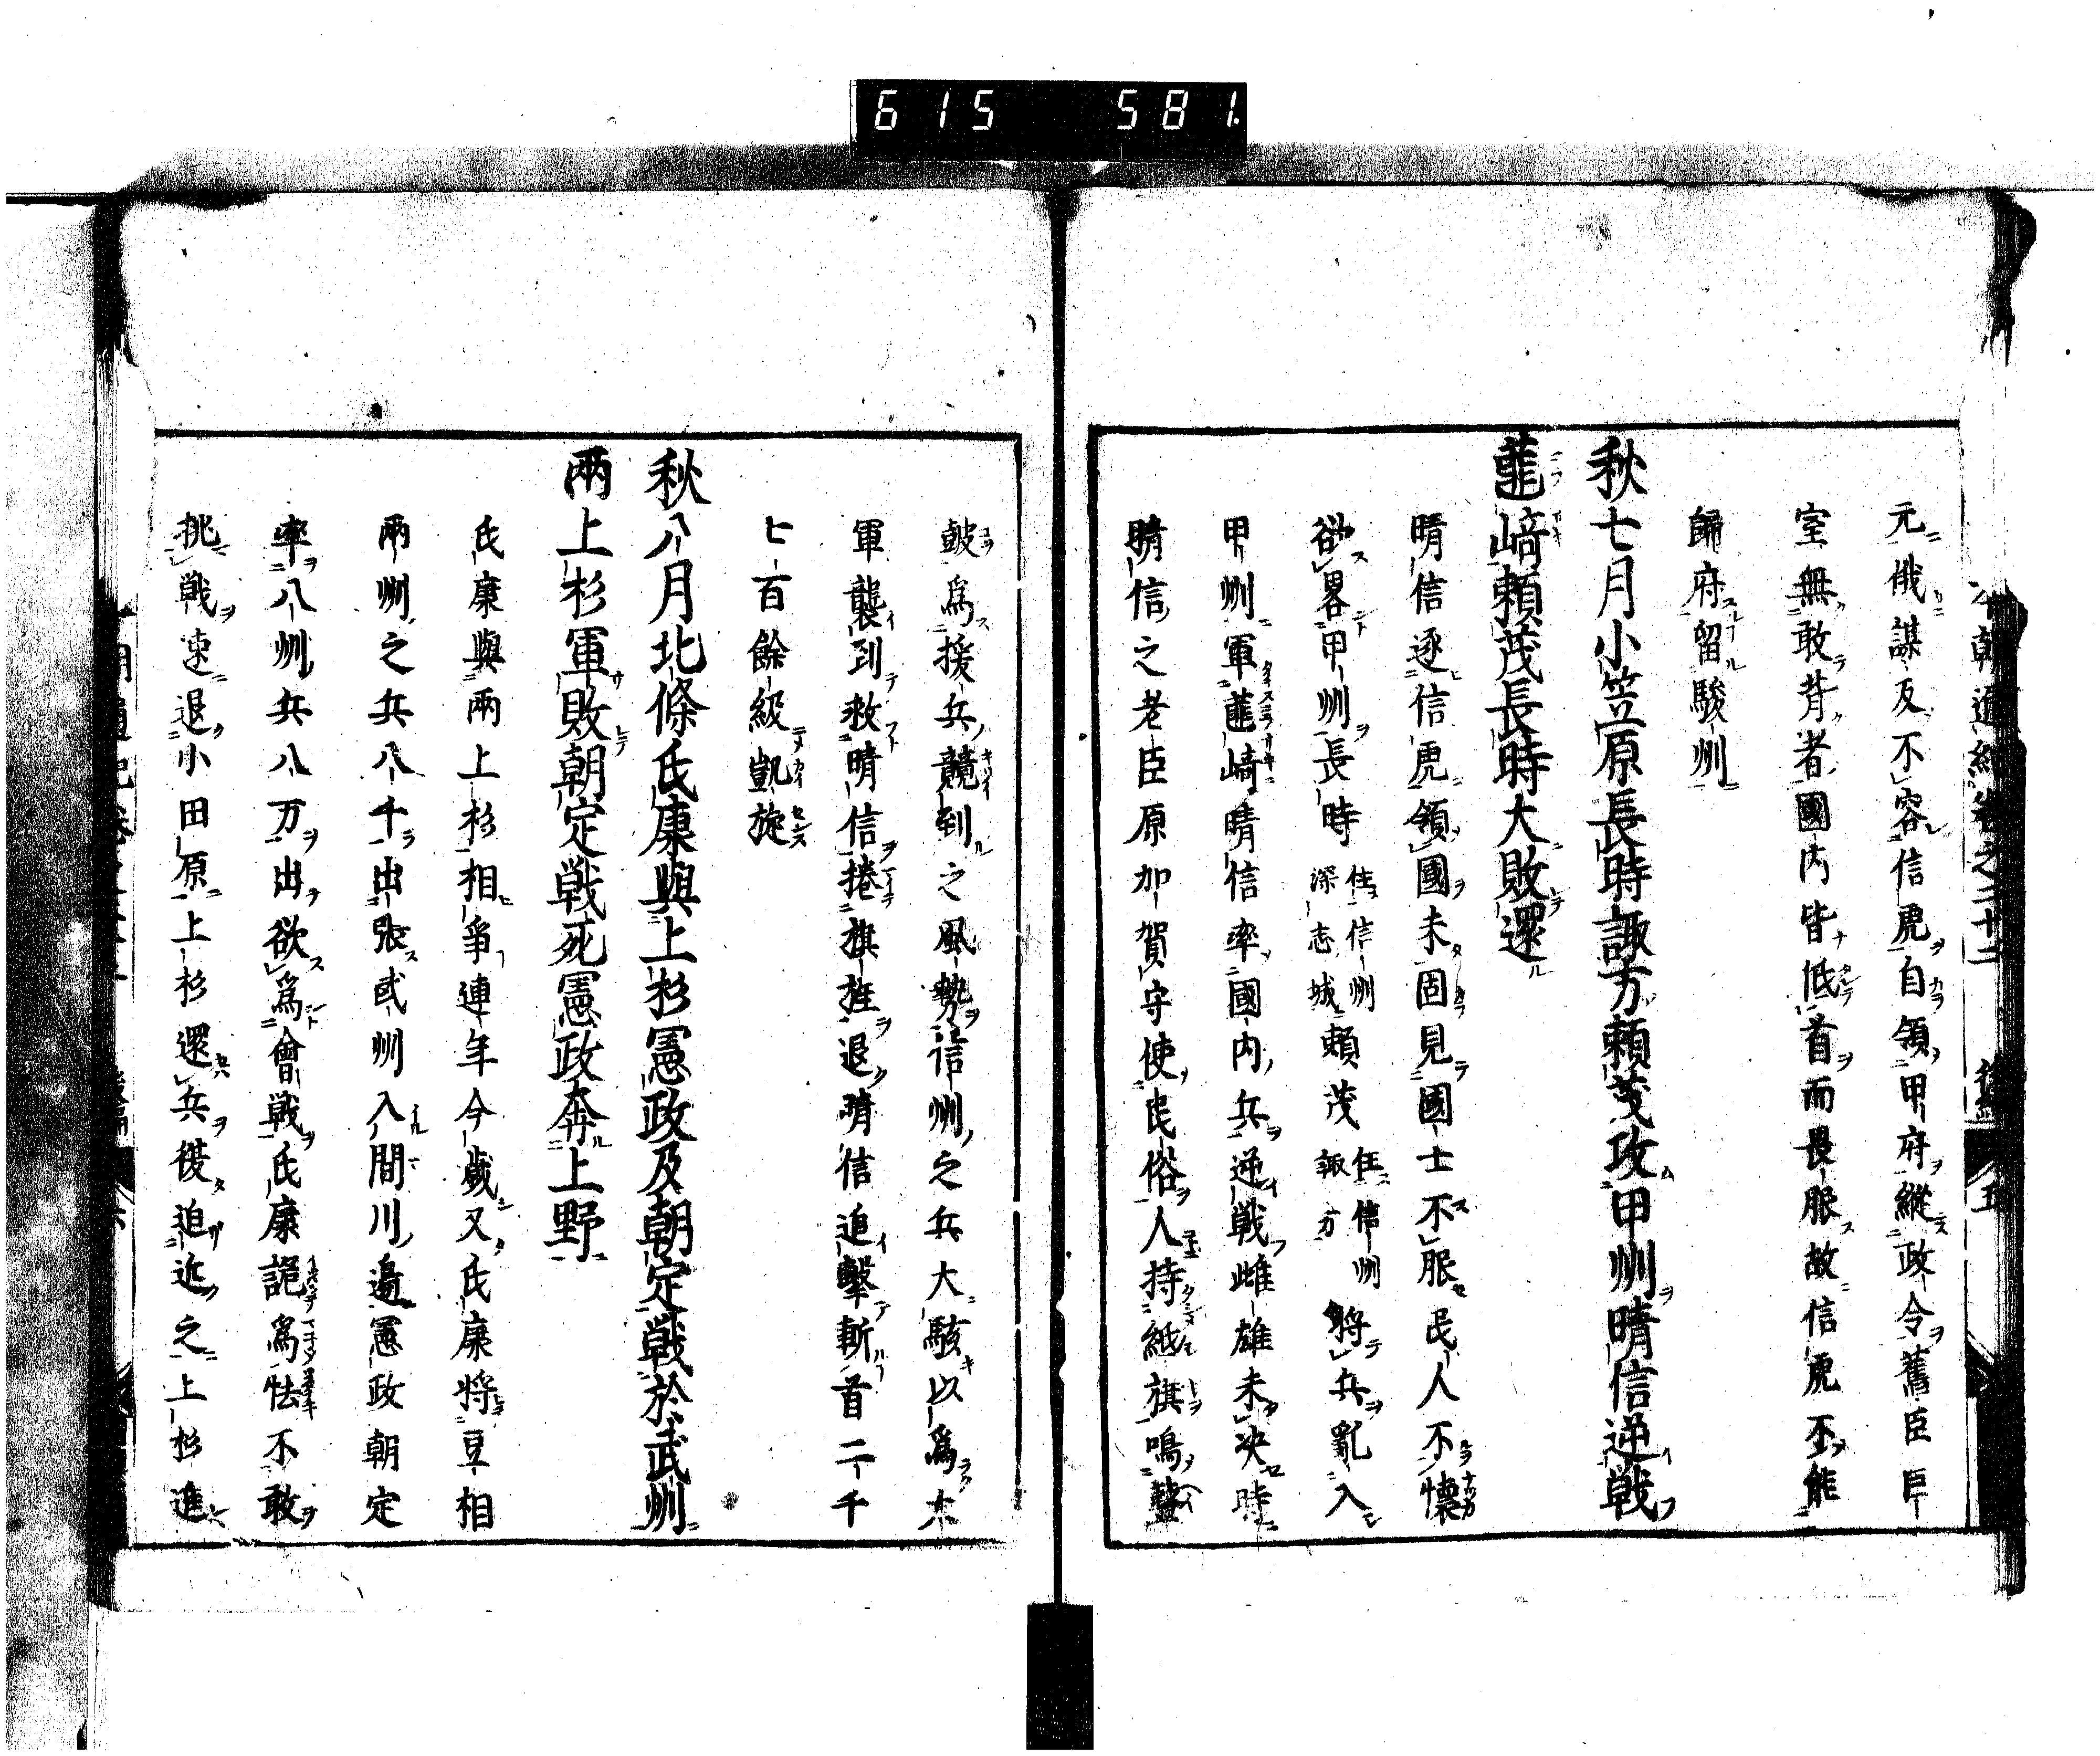 615 581.
元俄謀反不容信虎自領甲府縦政令舊臣巨
室無敢背者國内皆低首而畏服故信虎不能
歸府留駿州
秋七月小笠原長時諏方頼茂攻甲州晴信逆戦
韮﨑頼茂長時大敗還
晴信逐信虎領國未固見國士不服民人不懐
欲畧甲州長時住信州深志城頼茂住信州諏方將兵亂入
甲州軍韮﨑晴信率國内兵逆戦雌雄未决時
晴信之老臣原加賀守使民俗人持紙旗鳴鼛
皷為援兵競到之風勢信州之兵大駭以為大
軍襲到救晴信捲旗旌退晴信追擊斬首二千
七百餘級凱旋
秋八月北條氏康與上杉憲政及朝定戦於武州
兩上杉軍敗朝定戦死憲政奔上野
氏康與兩上杉相爭連年今歲又氏康将豆相
兩州之兵八千出張武州入間川邊憲政朝定
率八州兵八万出欲為會戦氏康詭為怯不敢
挑戦速退小田原上杉還兵後迫近之上杉進